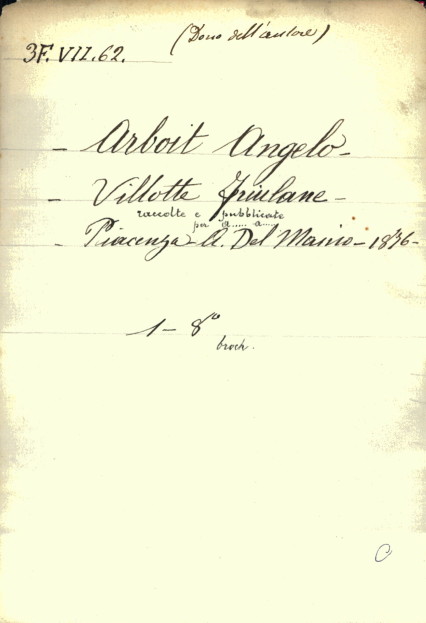 (Dono dell'autore)
3F. VII. 62.
- Arboit Angelo -
- Villotte Friulane -
raccolte e pubblicate
per A..... A....
- Piacenza - A. Del Maino - 1876 -
1 - 8º
broch.
C